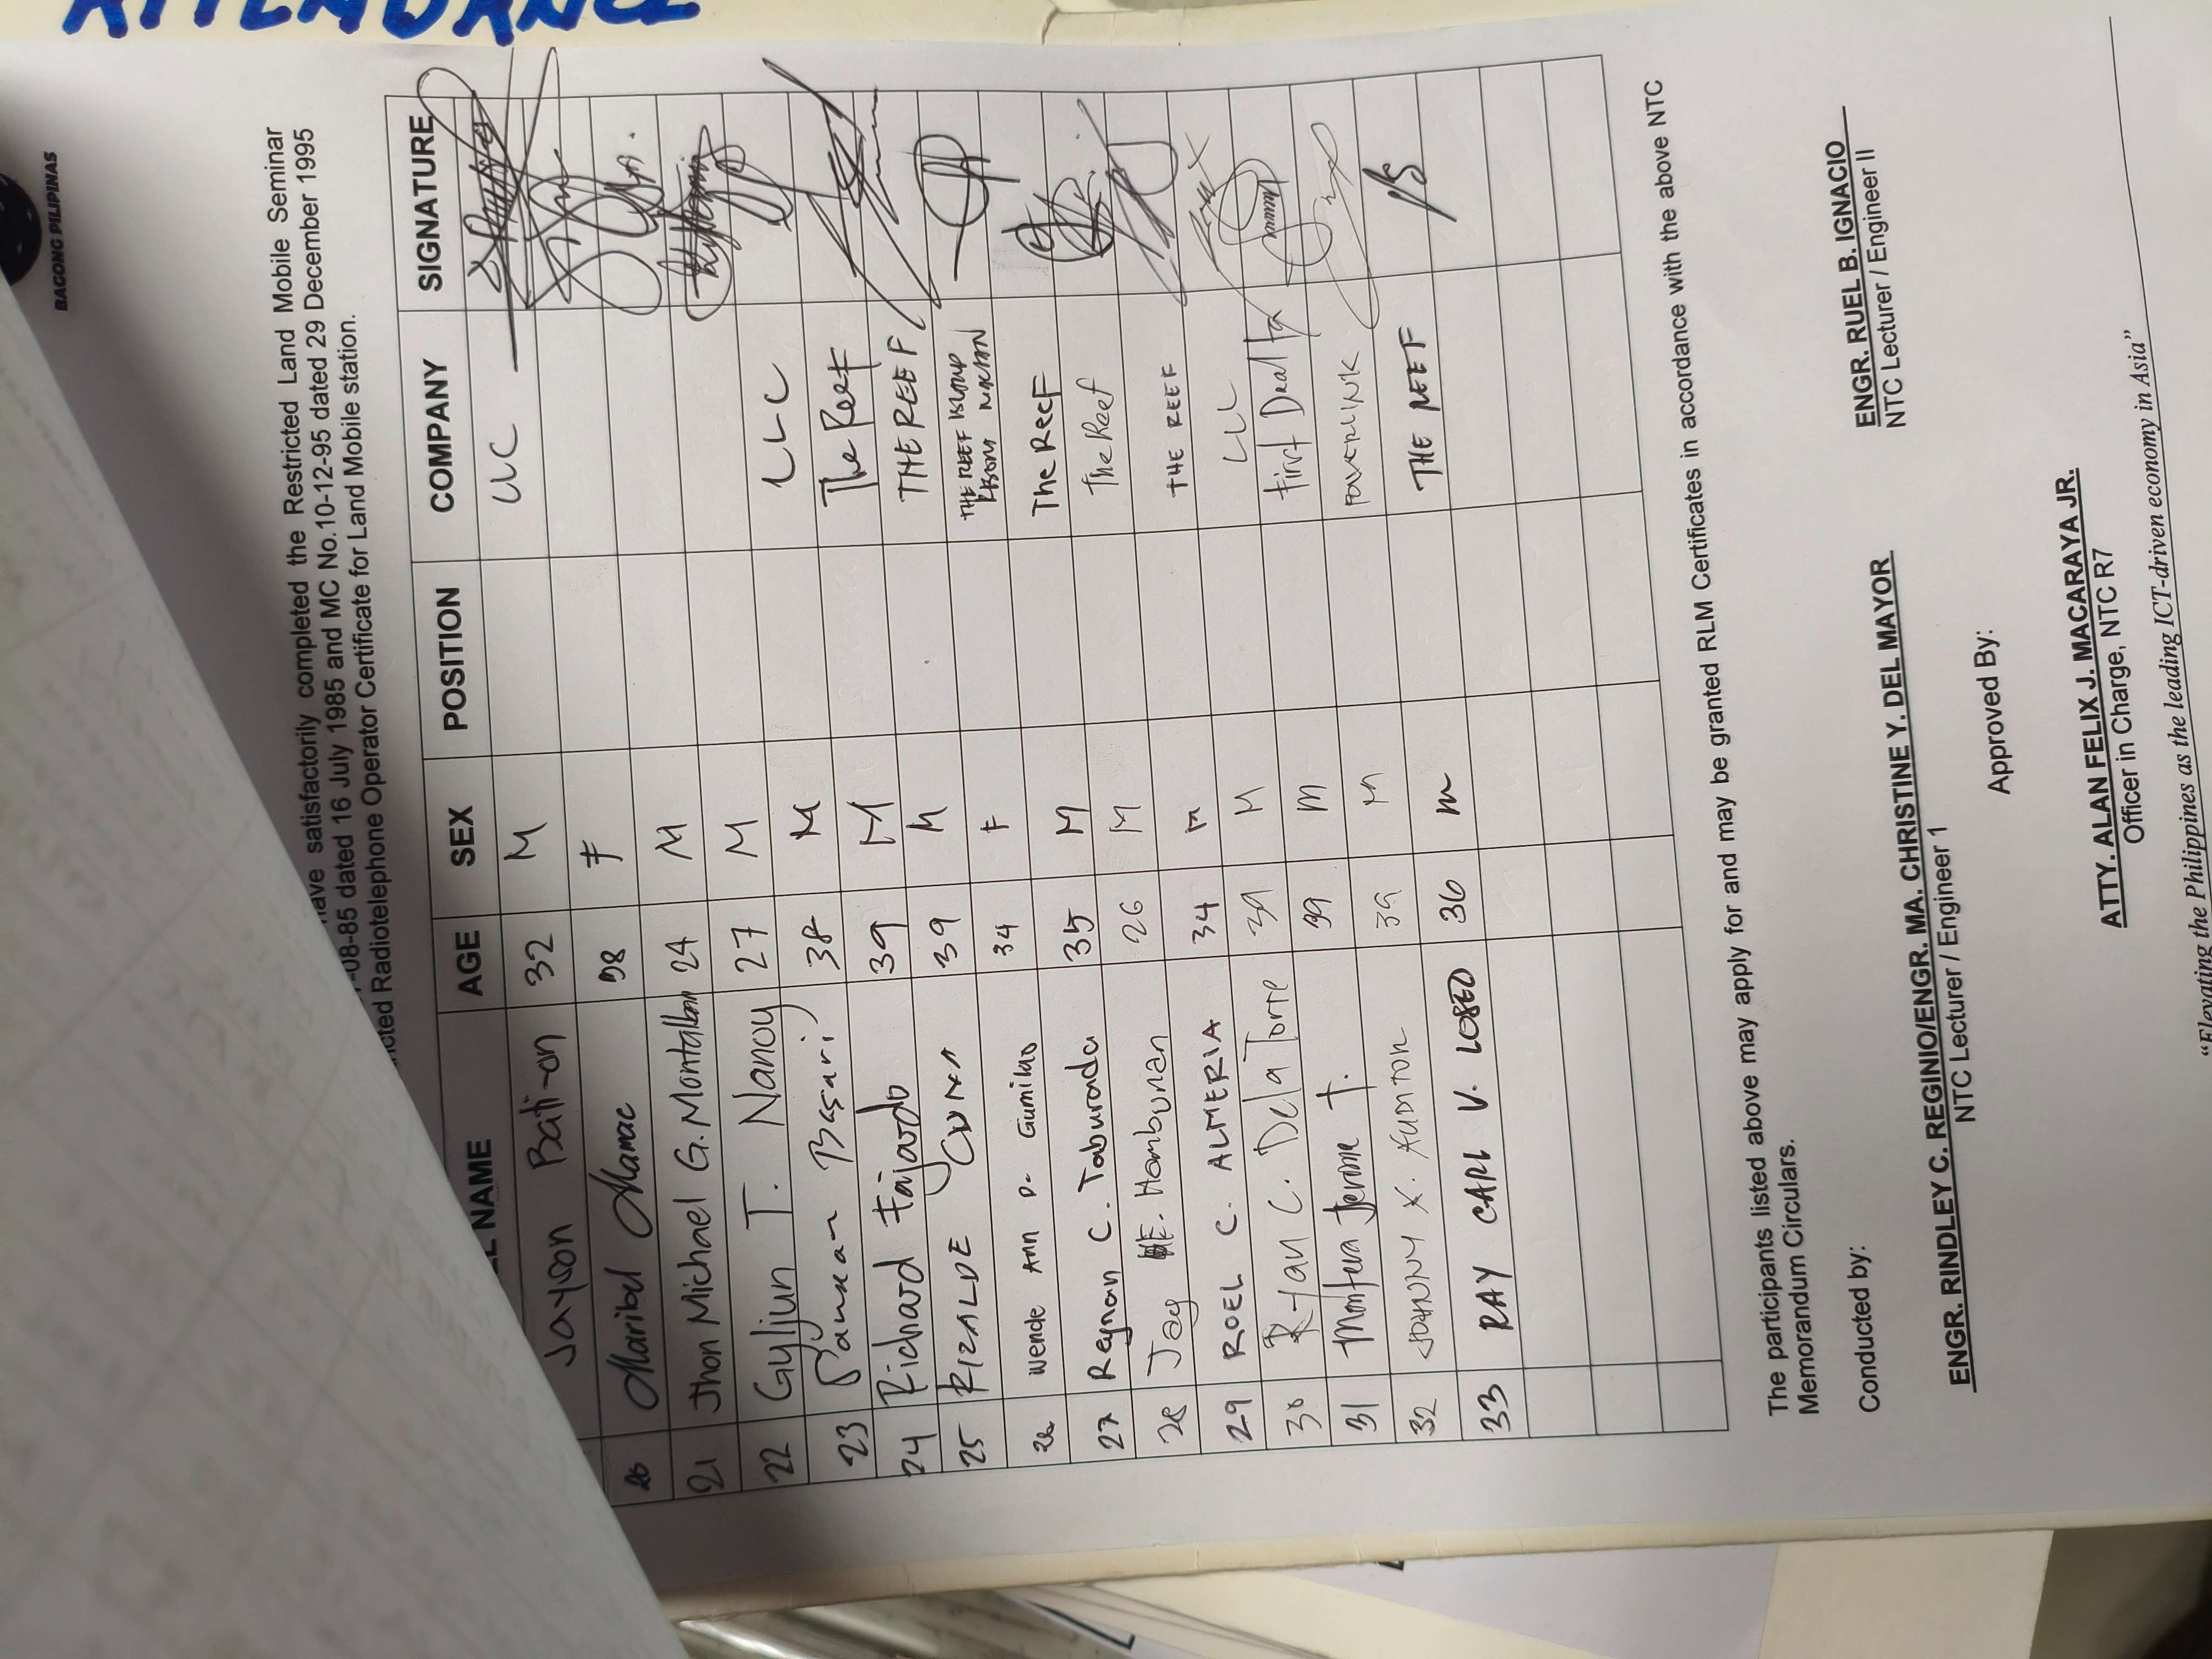 ATTENDANCE
BAGONG PILIPINAS
have satisfactorily completed the Restricted Land Mobile Seminar
-08-85 dated 16 July 1985 and MC No.10-12-95 dated 29 December 1995
Radiotelephone Operator Certificate for Land Mobile station.
NAME AGE SEX POSITION COMPANY SIGNATURE
Jayson Bati-on 32 M
20 Maribel Alamac 38 F
21 Jhon Michael G. Montalban 24 M
22 Gyljun T. Nanoy 27 M LLC
23 Basari 38 M The Reef
24 Richard Fajardo 39 M THE REEF
25 RIZALDE 39 M THE REEF ISLAND RESORT MACTAN
26 Wende Ann D. Gumilao 34 F The Reef
27 Reynan C. Taburada 35 M The Reef
28 Jay E. Hambunan 26 M THE REEF
29 ROEL C. ALMERIA 34 M LLL
30 Ryan C. Dela Torre 39 M First Dealta
31 Jerome T. 39 M POWERLINK
32 JOHNNY 39 M THE REEF
33 RAY CARL V. 36 M
The participants listed above may apply for and may be granted RLM Certificates in accordance with the above NTC
Memorandum Circulars.
Conducted by:
ENGR. RINDLEY C. REGINIO/ENGR. MA. CHRISTINE Y. DEL MAYOR
NTC Lecturer / Engineer 1
ENGR. RUEL B. IGNACIO
NTC Lecturer / Engineer II
Approved By:
ATTY. ALAN FELIX J. MACARAYA JR.
Officer in Charge, NTC R7
"Elevating the Philippines as the leading ICT-driven economy in Asia"